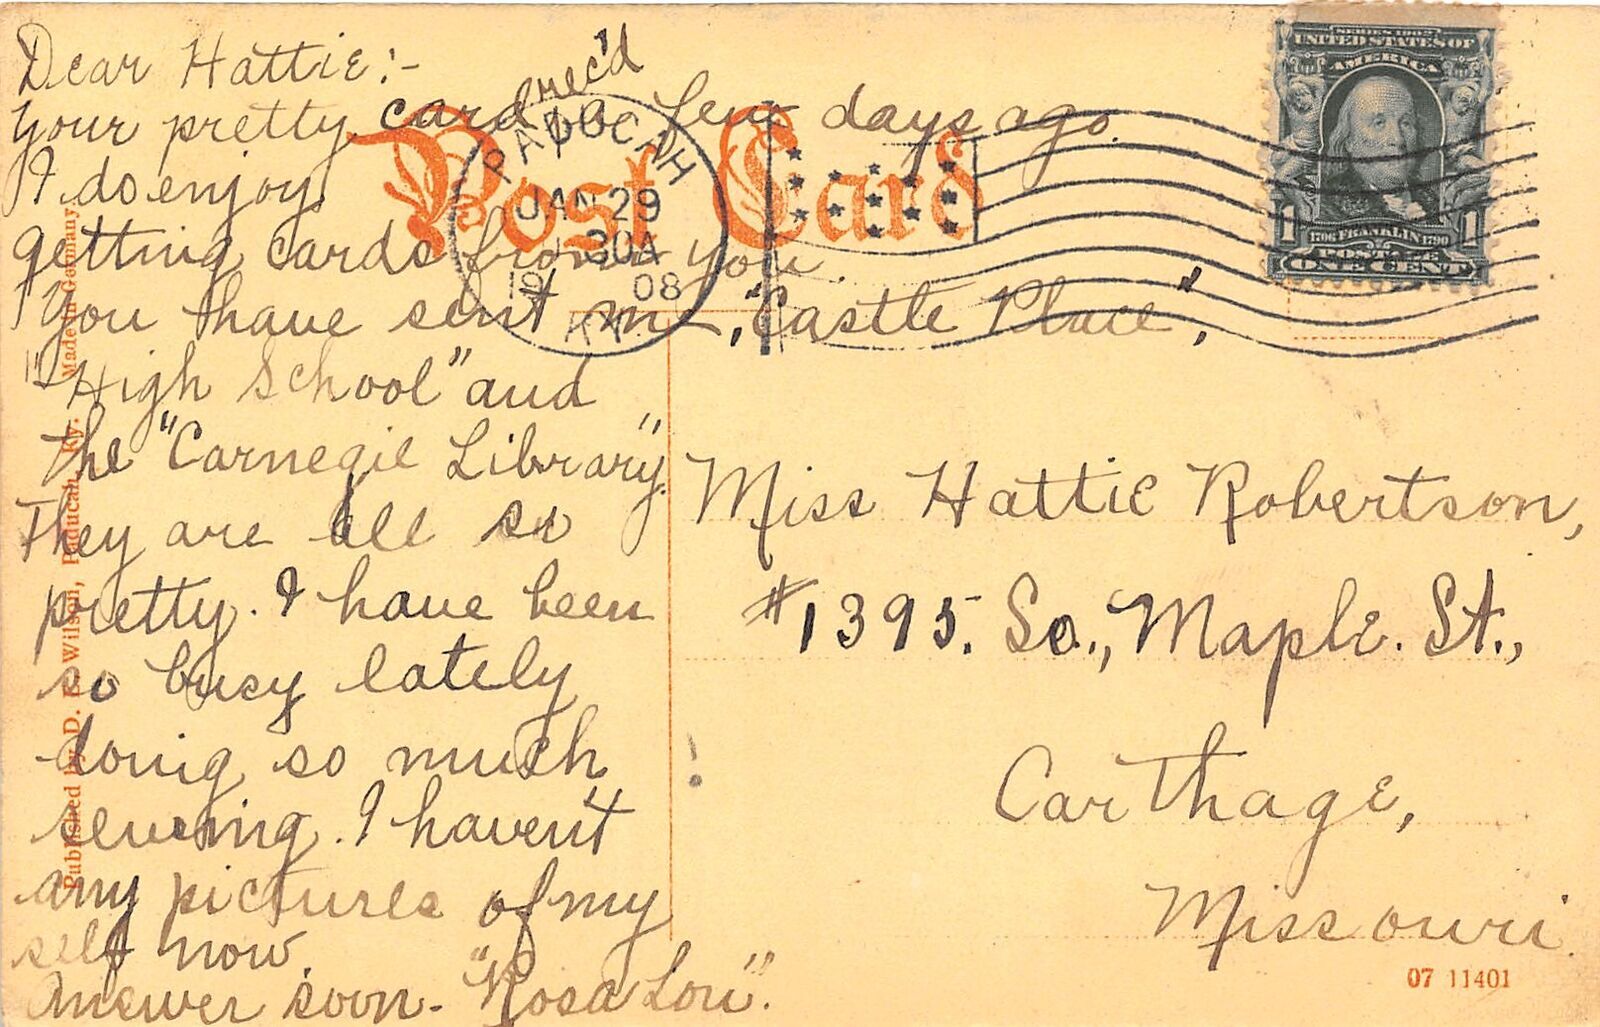 Dear Hattie:-
rec'd
Your pretty card a few days ago.
I do enjoy
getting cards from you.
You have sent me, "Castle Place",
"High School" and
the "Carnegie Library".
They are all so
pretty. I have been
so busy lately
doing so much
sewing. I haven't
any pictures of my
self now.
Answer soon- "Rosa Lou".
Post Card
PADUCAH
JAN 29
30A
19 08
KY.
SERIES 1902
UNITED STATES OF
AMERICA
1 1706 FRANKLIN 1790 1
POSTAGE
ONE CENT
Miss Hattie Robertson,
#1395. So., Maple. St.,
Carthage,
Missouri
Published by D. E. Wilson, Paducah, Ky. Made in Germany.
07 11401